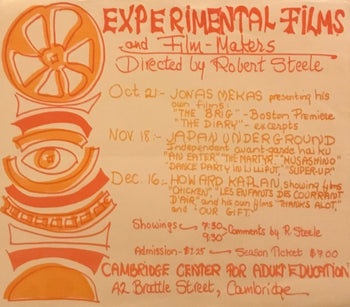 EXPERIMENTAL FILMS
and Film-Makers
Directed by Robert Steele
Oct 21- JONAS MEKAS presenting his
own films:
"THE BRIG"- Boston Premiere
"THE DIARY"- excerpts
NOV 18:- JAPAN UNDERGROUND
Independent avant-garde haiku
"AN EATER", "THE MARTYR", "MUSASHINO"
"DANCE PARTY IN LILLIPUT", "SUPER-UP"
Dec. 16:- HOWARD KAPLAN, showing films
"CHICKEN", "LES ENFANTS DES COURRANT
D'AIR," and his own films "THANKS ALOT,"
and "OUR GIFT."
Showings - 7:30 Comments by R. Steele
9:30
Admission-$1.25 - Season Ticket $7.00
CAMBRIDGE CENTER FOR ADULT EDUCATION
42 Brattle Street, Cambridge